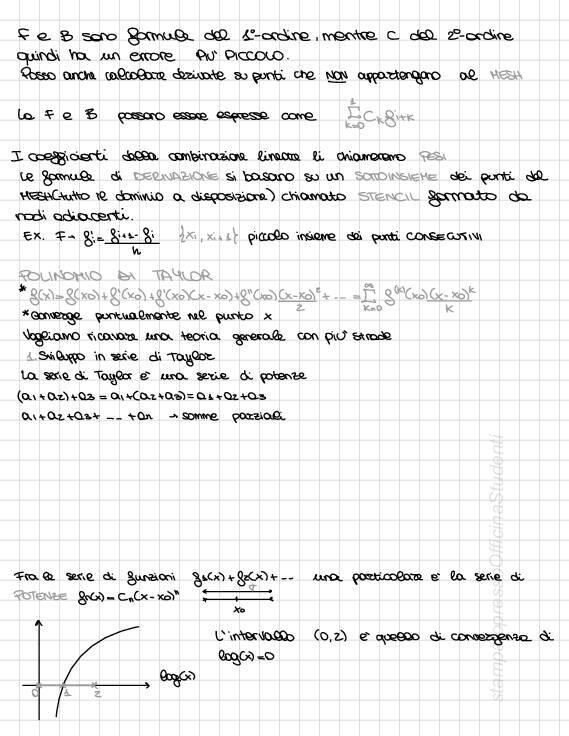 F e B sono formule del 1°-ordine, mentre C del 2°-ordine
quindi ha un errore PIU' PICCOLO.
Posso anche calcolare derivate su punti che NON appartengano al MESH
La F e B possono essere espresse come $\sum_{k=0}^{1} C_k f_{i+k}$
I coefficienti della combinazione lineare li chiameremo PESI
Le formule di DERIVAZIONE si basano su un SOTTOINSIEME dei punti del
MESH (tutto il dominio a disposizione) chiamato STENCIL formato da
nodi adiacenti.
EX. F→ $f_i' = \frac{f_{i+1} - f_i}{h}$ {x_i, x_{i+1}} piccolo insieme dei punti CONSECUTIVI
POLINOMIO DI TAYLOR
* $f(x) = f(x_0) + f'(x_0) + f'(x_0)(x-x_0) + f''(x_0)\frac{(x-x_0)^2}{2} + \dots = \sum_{k=0}^{\infty} f^{(k)}(x_0)\frac{(x-x_0)^k}{k}$
* Converge puntualmente nel punto x
Vogliamo ricavare una teoria generale con più strade
1. Sviluppo in serie di Taylor
La serie di Taylor è una serie di potenze
(a1+a2)+a3 = a1+(a2+a3) = a1+a2+a3
a1+a2+a3+ ... +an → somme parziali
Fra le serie di funzioni f1(x)+f2(x)+... una particolare è la serie di
POTENZE $f_n(x) = C_n(x-x_0)^n$
x0
L'intervallo (0,2) è quello di convergenza di
log(x)=0
log(x)
0 1 2
OfficinaStudenti